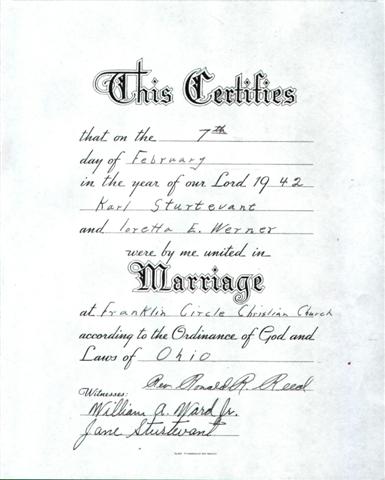 This Certifies
that on the 7th
day of February
in the year of our Lord 1942
Karl Sturtevant
and loretta E. Werner
were by me united in
Marriage
at Franklin Circle Christian Church
according to the Ordinance of God and
Laws of Ohio
Rev. Ronald R. Reed
Witnesses:
William A. Ward Jr.
Jane Sturtevant